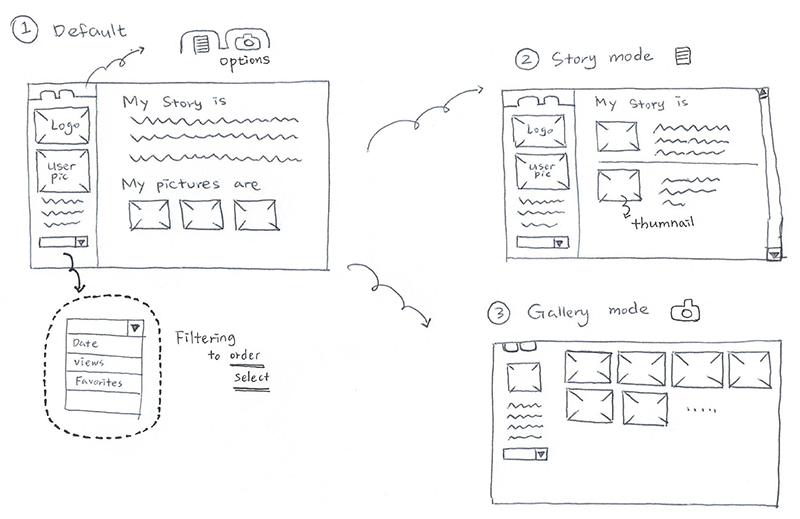 1 Default
options
Logo
User
pic
My Story is
My pictures are
Date
views
Favorites
Filtering
to order
select
2 Story mode
Logo
User
pic
My Story is
thumnail
3 Gallery mode